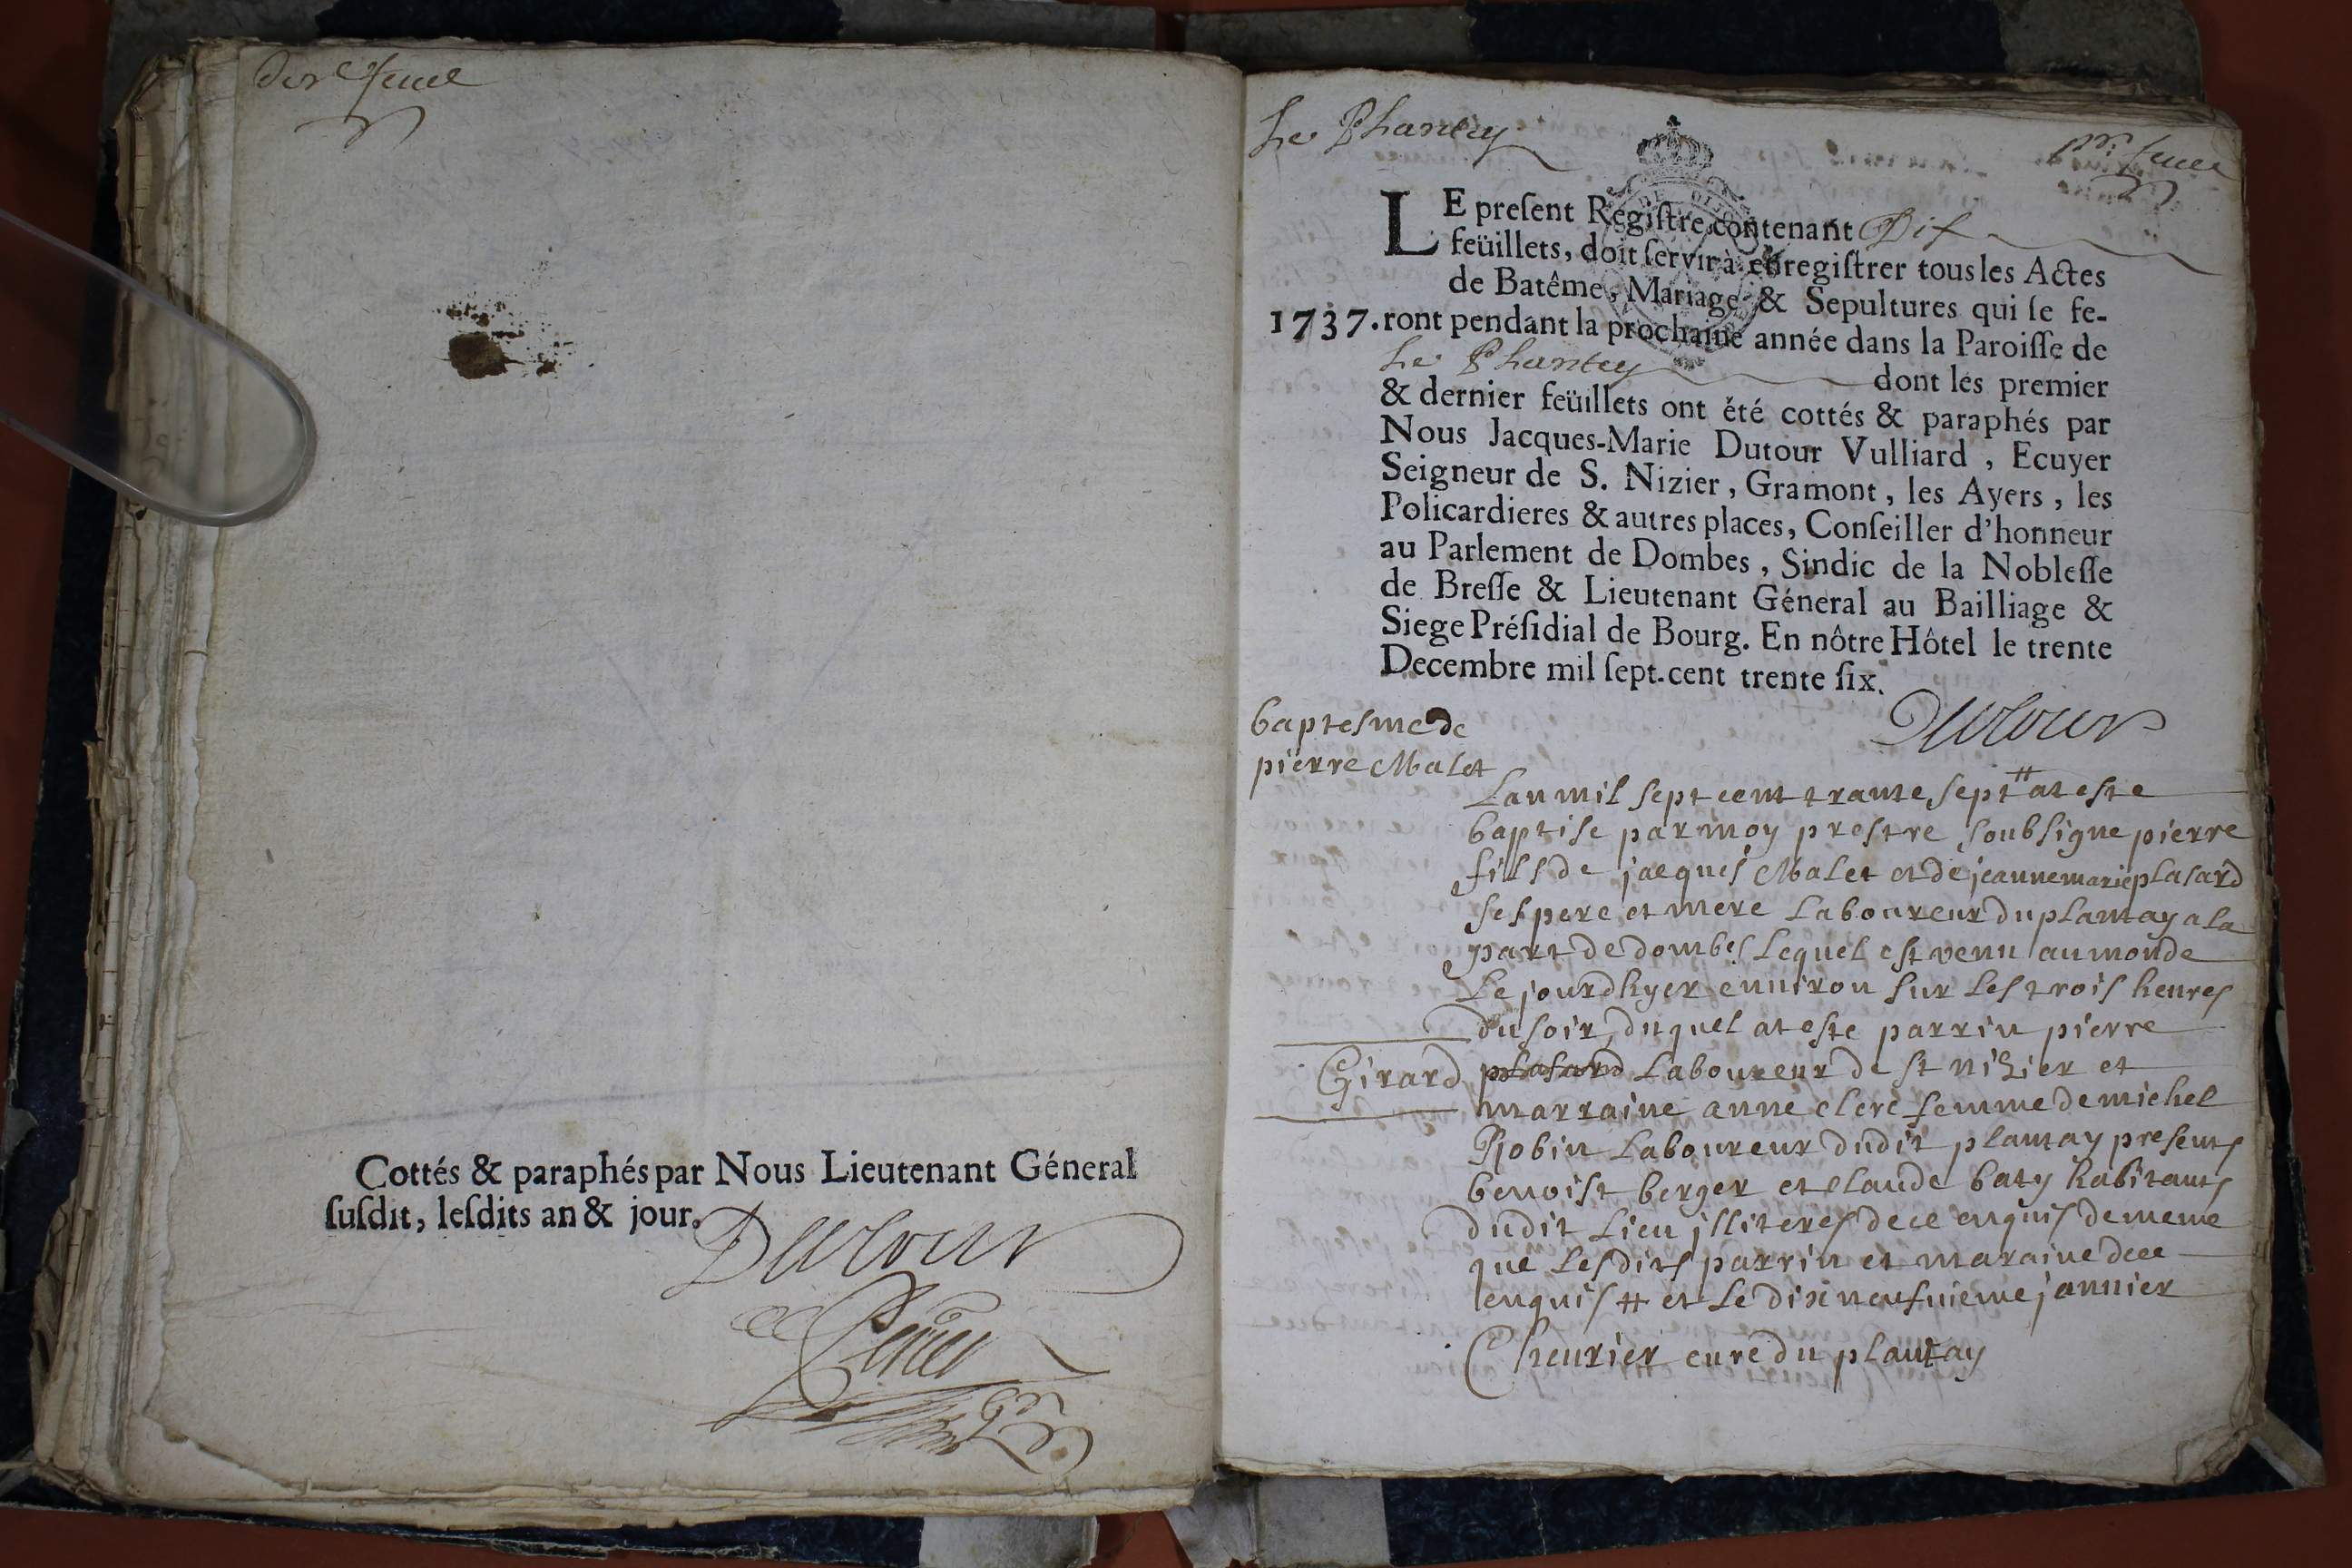 der feuel
Cottés & paraphés par Nous Lieutenant Géneral
ſuſdit, leſdits an & jour.
Dutour
Le Plantey
pr. feuel
LE preſent Regiſtre contenant Dix
feüillets, doit ſervir à enregiſtrer tous les Actes
de Batême, Mariage & Sepultures qui ſe fe-
1737. ront pendant la prochaine année dans la Paroiſſe de
Le Plantey dont les premier
& dernier feüillets ont été cottés & paraphés par
Nous Jacques-Marie Dutour Vulliard, Ecuyer
Seigneur de S. Nizier, Gramont, les Ayers, les
Policardieres & autres places, Conſeiller d'honneur
au Parlement de Dombes, Sindic de la Nobleſſe
de Breſſe & Lieutenant Géneral au Bailliage &
Siege Préſidial de Bourg. En nôtre Hôtel le trente
Decembre mil ſept-cent trente ſix.
Dutour
baptesme de
pierre Malet
Lan mil sept cent trante sept # at este
baptise par moy prestre soubsigne pierre
fils de jacques Malet et de jeanne marie plasard
ses pere et mere Laboureur du plantay a la
part de dombes Lequel est venu au monde
Le jourdhyer environ sur les trois heures
du soir, duquel at este parrin pierre
Girard plasard Laboureur de st nizier et
marraine anne clerc femme de michel
Robin Laboureur dudit plantay presents
benoist berger et claude baty habitants
dudit Lieu jlliteres de ce enquis de meme
que Lesdits parrin et maraine dece
enquis # et Le dixneufuieme januier
Cheurier curé du plantay